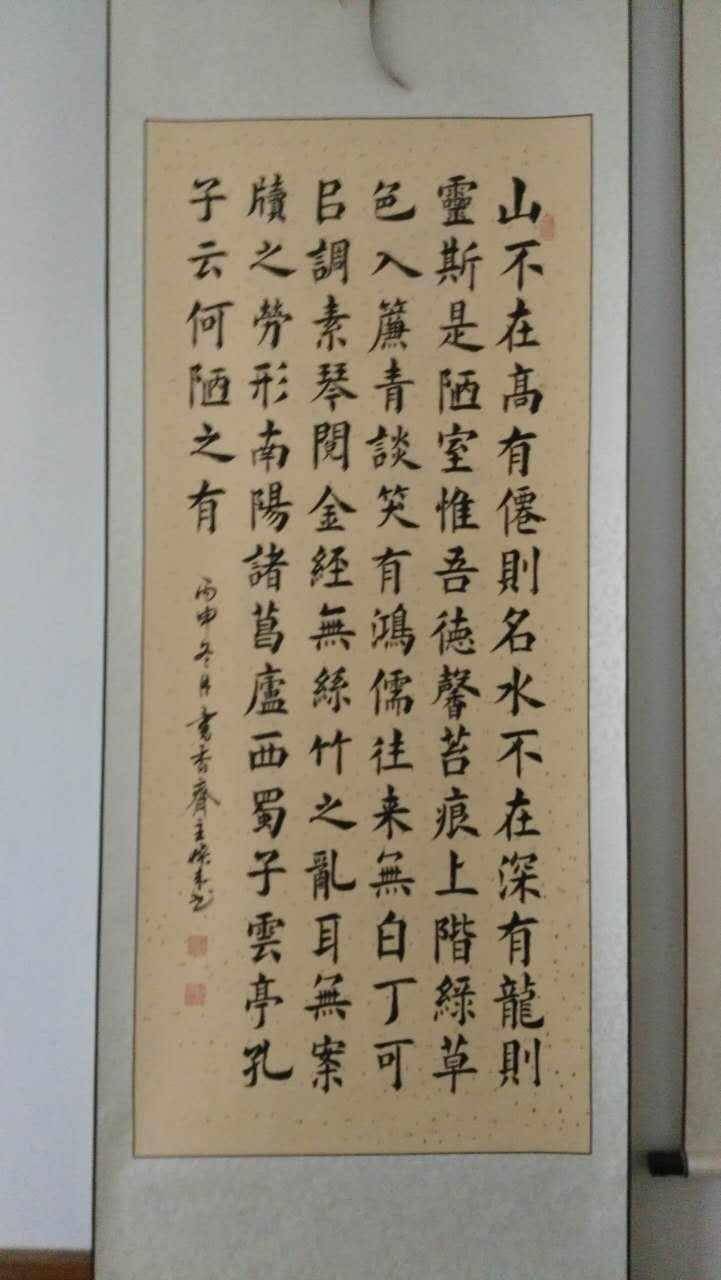 山不在髙有僊則名水不在深有龍則
靈斯是陋室惟吾徳馨苔痕上階綠草
色入簾青談笑有鴻儒往来無白丁可
㠯調素琴閱金經無絲竹之亂耳無案
牘之勞形南陽諸葛廬西蜀子雲亭孔
子云何陋之有
丙申冬月書香齋主